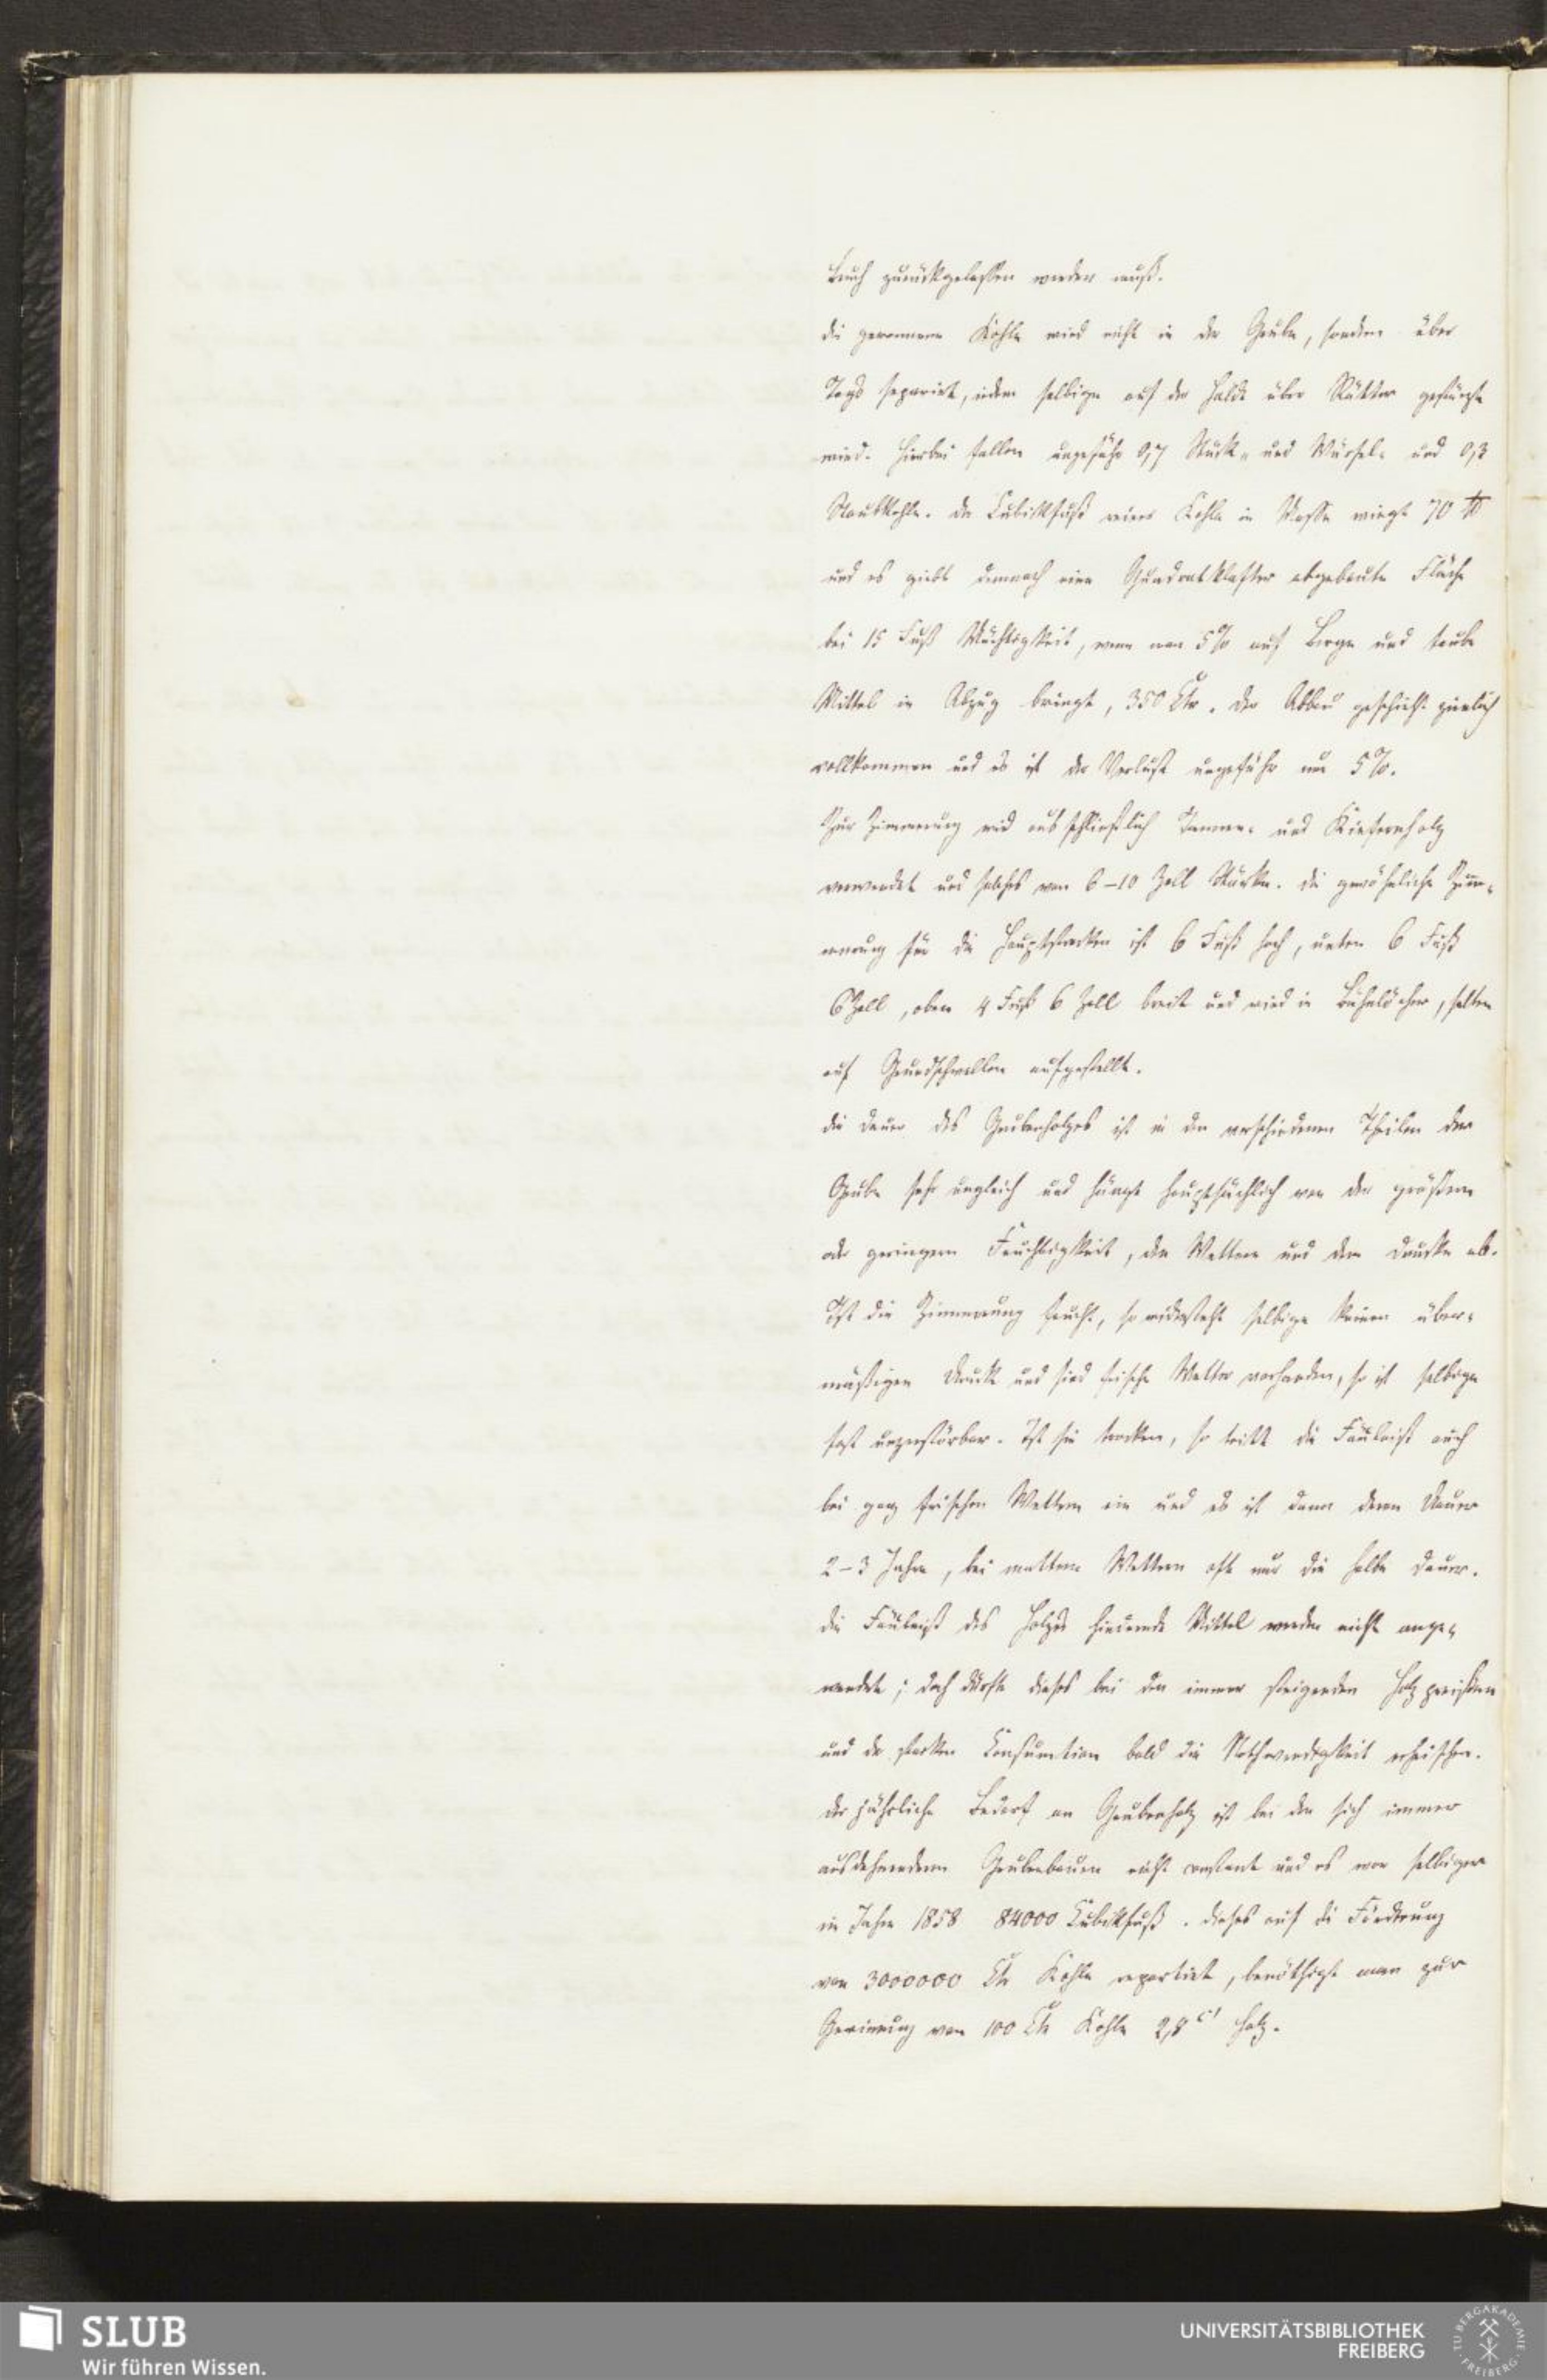 Bruch zurückgelassen werden muß.
Die gewonnene Kohle wird nicht in der Grube, sondern über
Tags separirt, indem selbige auf der Halde über Rätter gestürzt
wird. Hierbei fallen ungefähr 0,7 Stück- und Würfel- und 0,3
Staubkohle. Der Cubikfuß reiner Kohle in Masse wiegt 70 ℔
und es giebt demnach eine Quadratklafter abgebaute Fläche
bei 15 Fuß Mächtigkeit, wenn man 5% auf Berge und taube
Mittel in Abzug bringt, 350 Ctr. Der Abbau geschieht ziemlich
vollkommen und es ist der Verlust ungefähr nur 5%.
Zur Zimmerung wird ausschließlich Tannen- und Kiefernholz
verwendet und solches von 6-10 Zoll Stärke. Die gewöhnliche Zim-
merung für die Hauptstrecken ist 6 Fuß hoch, unten 6 Fuß
6 Zoll, oben 4 Fuß 6 Zoll breit und wird in Bühnlöcher, selten
auf Grundschwellen aufgestellt.
Die Dauer des Grubenholzes ist in den verschiedenen Theilen der
Grube sehr ungleich und hängt hauptsächlich von der größern
oder geringern Feuchtigkeit, den Wettern und dem Drucke ab.
Ist die Zimmerung feucht, so widersteht selbige keinem über-
mäßigen Druck und sind frische Wetter vorhanden, so ist selbige
fast unzerstörbar. Ist sie trocken, so tritt die Fäulniß auch
bei ganz frischen Wettern ein und es ist dann deren Dauer
2-3 Jahre, bei matten Wettern oft nur die halbe Dauer.
Die Fäulniß des Holzes hindernde Mittel werden nicht ange-
wendet; doch dürfte dieses bei den immer steigenden Holzpreißen
und der starken Consumtion bald die Nothwendigkeit erheischen.
Der jährliche Bedarf an Grubenholz ist bei den sich immer
ausdehnenden Grubenbauen nicht constant und es war selbiger
im Jahre 1858 84000 Cubikfuß. Dieses auf die Förderung
von 3000000 Ctr Kohle repartirt, benöthigt man zur
Gewinnung von 100 Ctr Kohle 2,8 c' Holz.
SLUB
Wir führen Wissen.
UNIVERSITÄTSBIBLIOTHEK
FREIBERG
TU BERGAKADEMIE FREIBERG